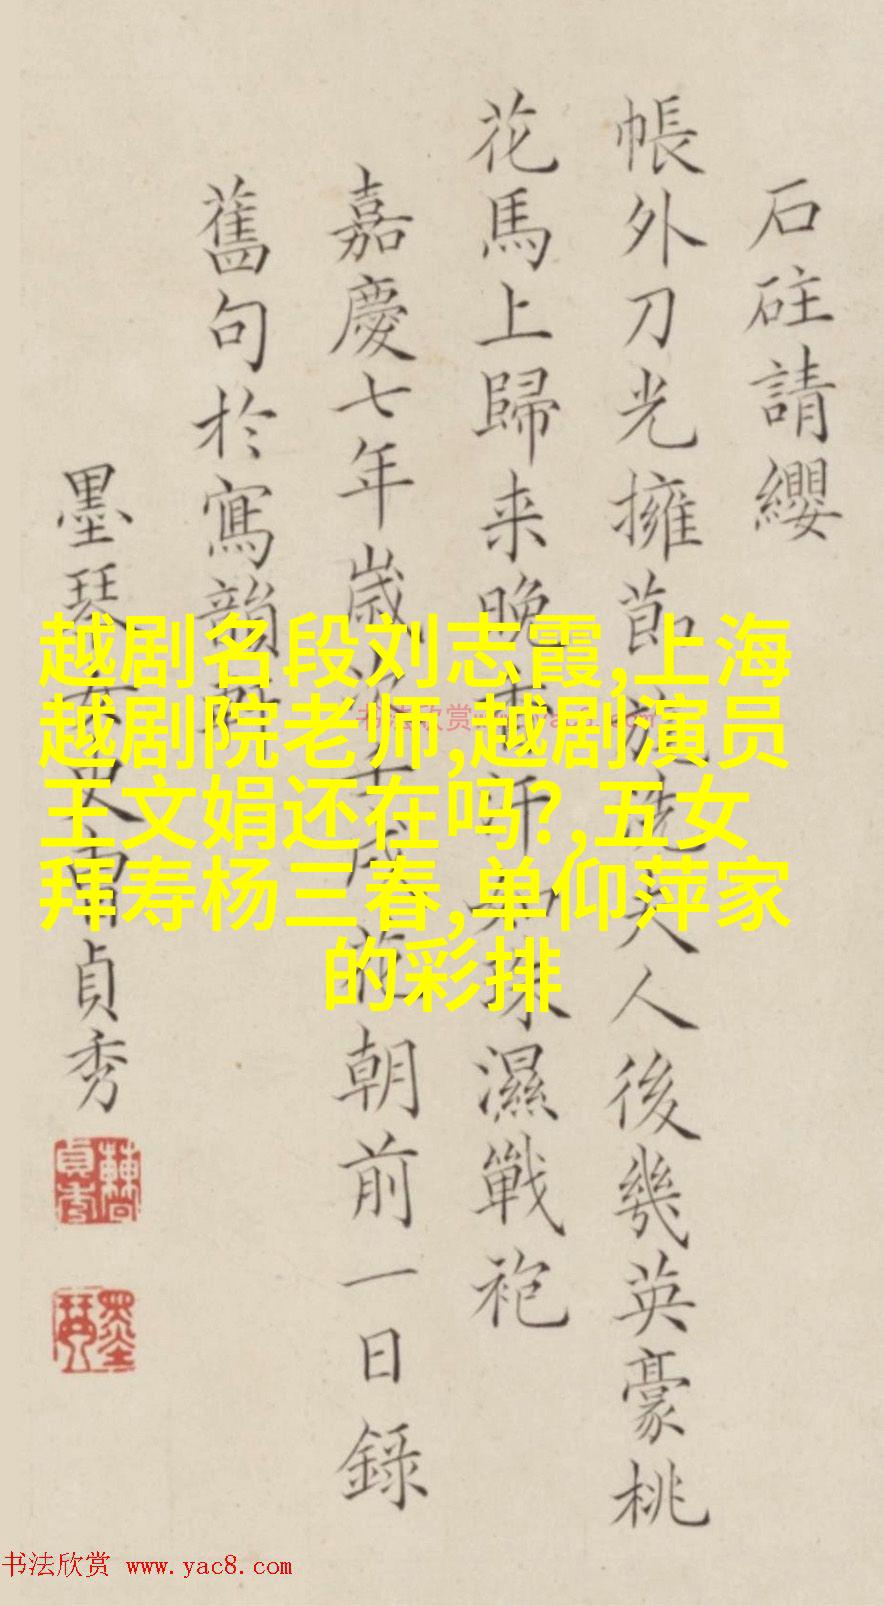 石砫請纓
帳外刀光擁節旄夫人後幾英豪桃
花馬上歸来晚汗如珠濕戰袍
嘉慶七年歲次壬戌花朝前一日錄
舊句於寫韻軒
墨琴女史曹貞秀
越剧名段刘志霞,上海
越剧院老师,越剧演员
王文娟还在吗?,五女
拜寿杨三春,单仰萍家
的彩排
书法欣赏 www.yac8.com